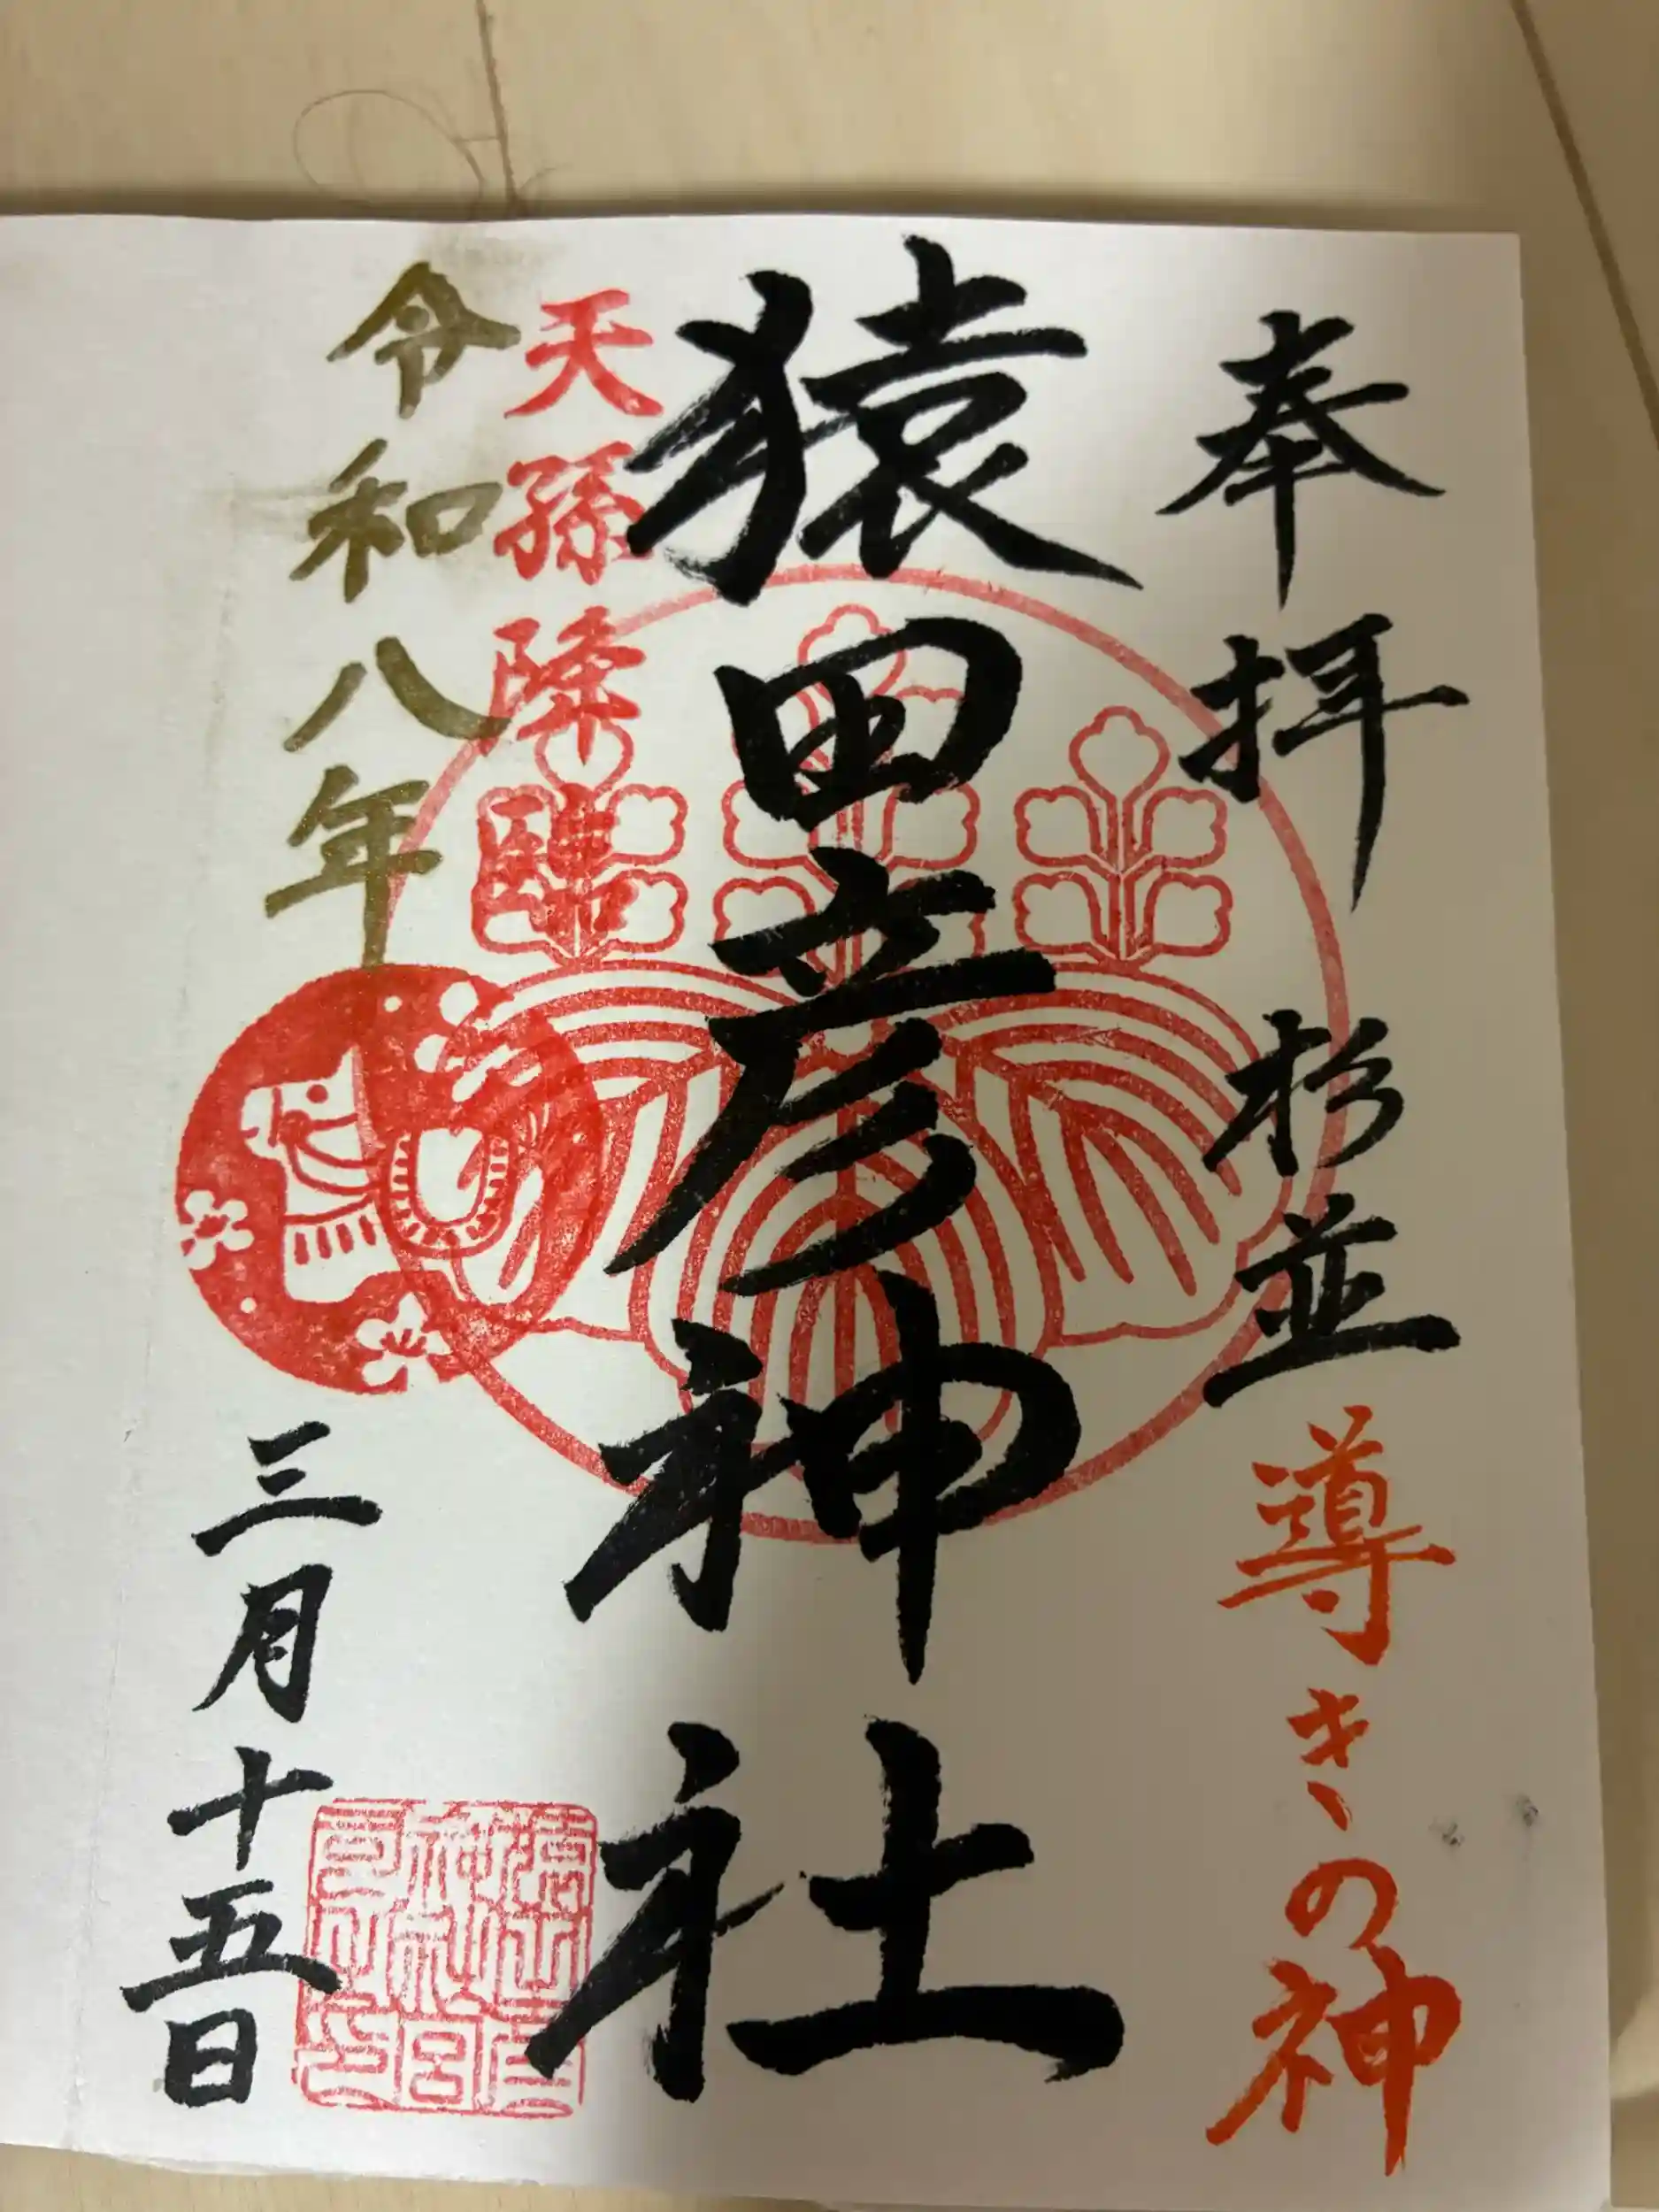 奉拝 杉並 導きの神
猿田彦神社
天孫降臨
令和八年 三月十五日